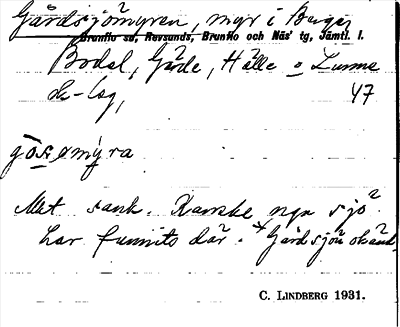 Gårdsjömyren, myr i Binge,
Brunflo sn, Revsunds, Brunflo och Näs' tg, Jämtl. l.
Bodal, Gärde, Hälle o Lunne
sk-lag, 47
Mkt sank. Kanske ngn sjö
har funnits där. *Gårdsjön okänd.
C. LINDBERG 1931.